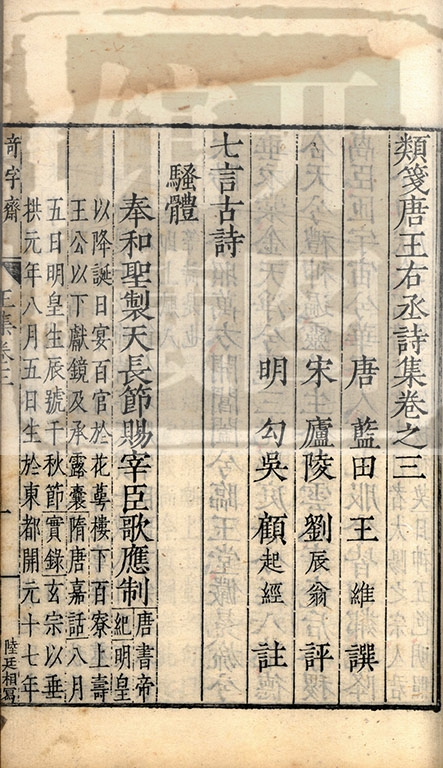 類箋唐王右丞詩集卷之三
唐藍田王維譔
宋廬陵劉辰翁評
明勾吳顧起經註
七言古詩
騷體
奉和聖製天長節賜宰臣歌應制唐書帝紀明皇
以降誕日宴百官於花萼樓下百寮上壽
王公以下獻鏡及承露囊隋唐嘉話八月
五日明皇生辰號千秋節實錄玄宗以垂
拱元年八月五日生於東都開元十七年
奇字齋
王集卷三
一
陸廷相寫